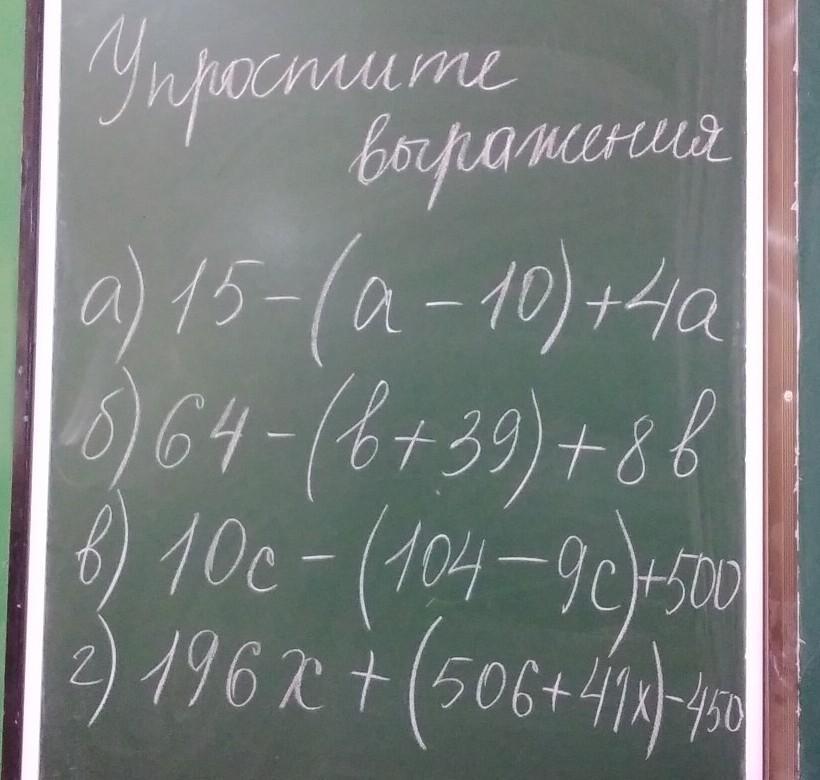 Упростите
выражения
а) 15-(а-10)+4а
б) 64-(в+39)+8в
в) 10с-(104-9с)+500
г) 196х+(506+41х)-450